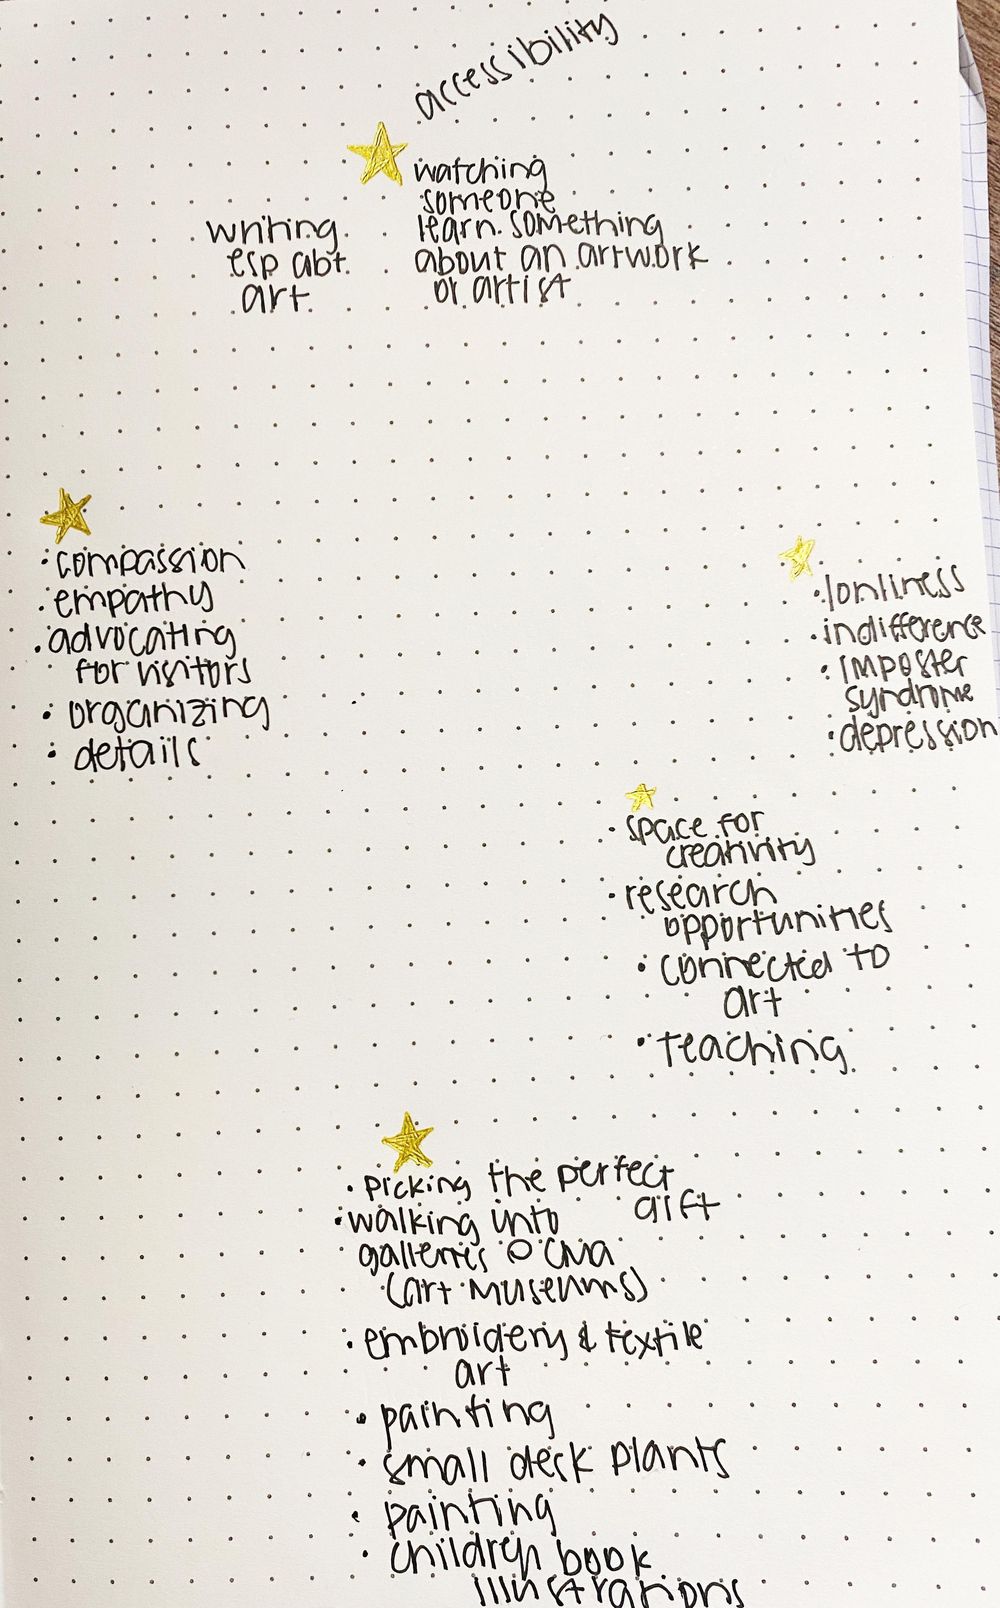 accessibility
watching
someone
learn something
about an artwork
or artist
writing
esp abt.
art.
• compassion
• empathy
• advocating
for visitors
• organizing
• details
• lonliness
• indifference
• imposter
syndrome
• depression
• space for
creativity
• research
opportunities
• connected to
art
• teaching
• picking the perfect
gift
• walking into
galleries @ CMA
(art museums)
• embroidery & textile
art
• painting
• small desk plants
• painting
• children book
illustrations